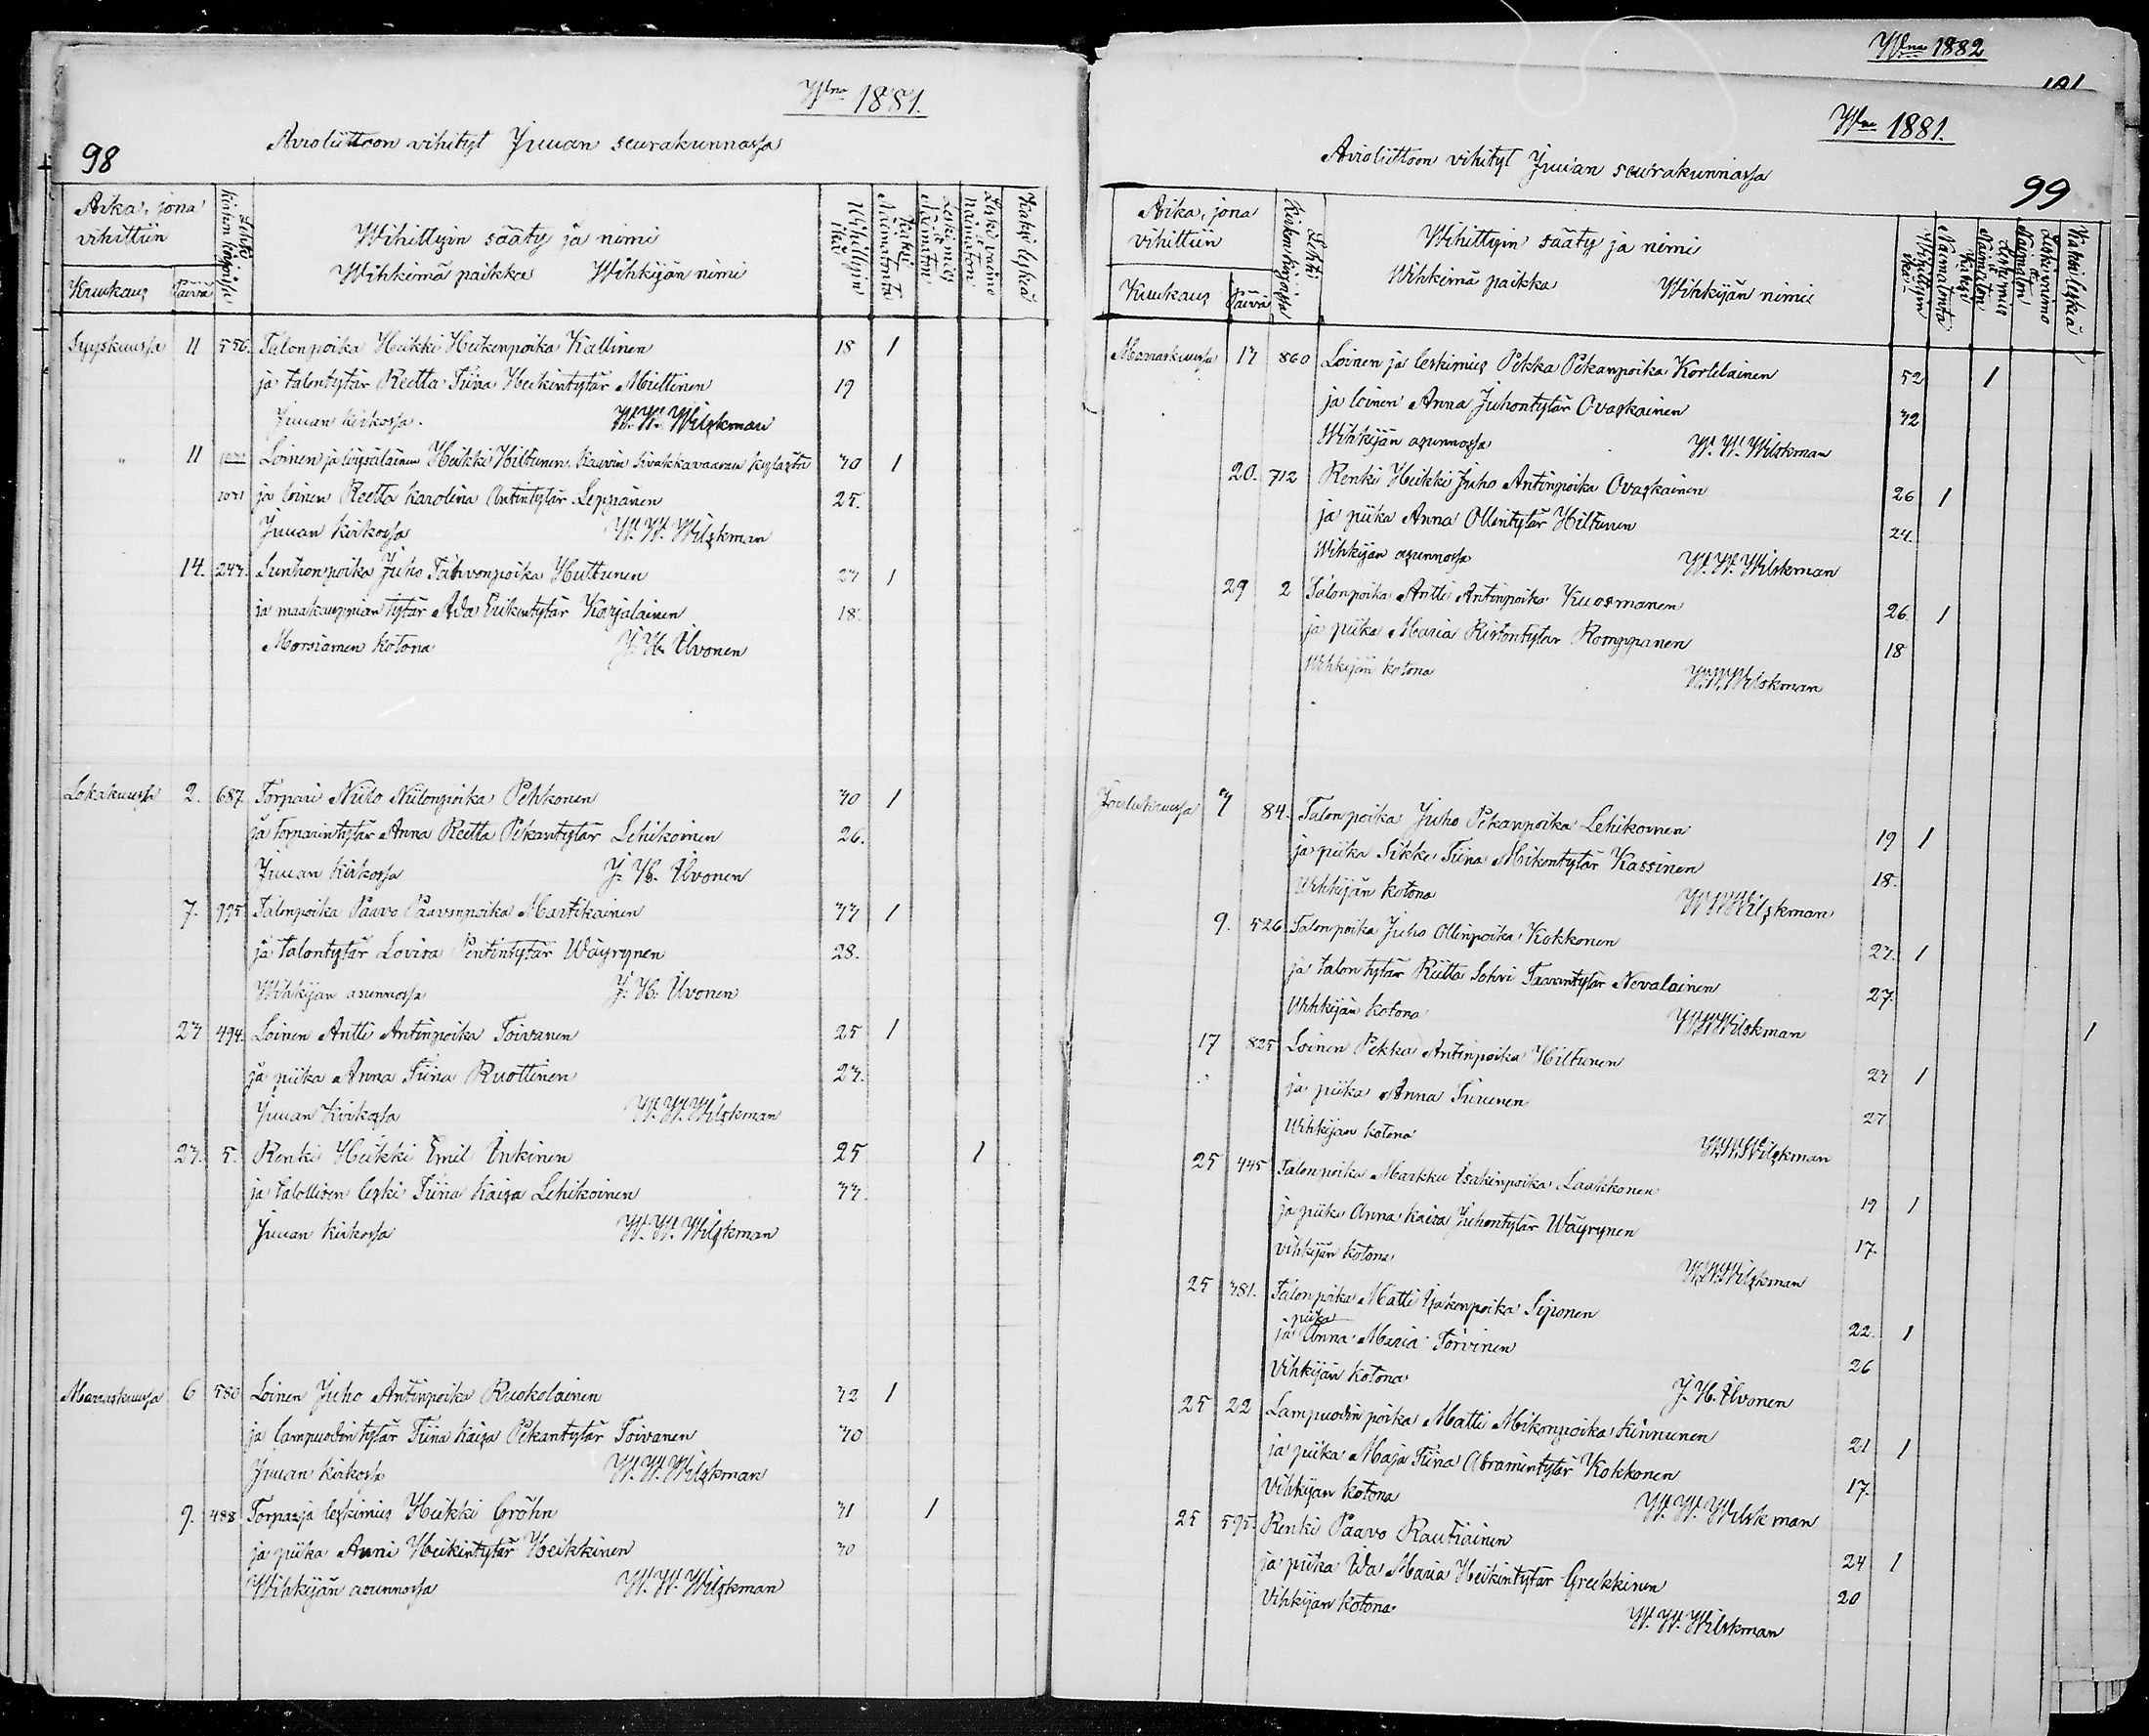 Wna 1881.
98
Avioliittoon vihityt Juuan seurakunnassa
Aika, jona vihittiin
Kuukaus
Päivä
Lehti kirkon kirjassa
Wihittyin sääty ja nimi
Wihkimä paikka Wihkijän nimi
Wihittyin ikä
Kaksi Naimatonta
Leskimies ja Naimaton
Leskivaimo ja naimaton
Kaksi leskeä
Syyskuussa 11 556. Talonpoika Heikki Heikinpoika Kallinen 18 1
ja talontytär Reetta Tiina Heikintytär Miettinen 19
Juuan kirkossa. W. W. Wilskman
" 11 Loinen ja löysäläinen Heikki Hiltunen Kaavin Sivakkavaaran kylästä 30 1
1071 ja loinen Reetta Karolina Antintytär Leppänen 25.
Juuan kirkossa W. W. Wilskman
14. 243. Suntionpoika Juho Tahvonpoika Huttunen 23 1
ja maakauppian tytär Ada Erikintytär Korjalainen 18.
Morsiamen kotona J. H. Ilvonen
Lokakuussa 2. 687. Torpari Niilo Niilonpoika Pehkonen 30 1
ja torparintytär Anna Reetta Pekantytär Lehikoinen 26.
Juuan kirkossa J. H. Ilvonen
7. 995 Talonpoika Paavo Paavonpoika Martikainen 33 1
ja talontytär Lovisa Pentintytär Wäyrynen 28.
Wihkijän asunnossa J. H. Ilvonen
23 494. Loinen Antti Antinpoika Toivanen 25 1
ja piika Anna Tiina Ruottinen 23.
Juuan Kirkossa W. W. Wilskman
23. 5. Renki Heikki Emil Inkinen 25 1
ja talollisen leski Tiina Kaisa Lehikoinen 33.
Juuan kirkossa W. W. Wilskman
Marraskuussa 6 580 Loinen Juho Antinpoika Ruokolainen 32 1
ja lampuodin tytär Tiina Kaisa Pekantytär Toivanen 30
Juuan kirkossa W. W. Wilskman
9. 488 Torpp. ja leskimies Heikki Gröhn 31 1
ja piika Anni Heikintytär Heikkinen 30
Wihkijän asunnossa W. W. Wilskman
Wna 1882
101
Wna 1881.
Avioliittoon vihityt Juuan seurakunnassa
99
Aika, jona vihittiin
Kuukaus
Päivä
Lehti Kirkonkirjassa
Wihittyin sääty ja nimi
Wihkimä paikka Wihkijän nimi
Wihittyin ikä.
Kaksi Naimatonta
Leskimies ja Naimaton
Leskivaimo ja Naimaton
Kaksi leskeä
Marraskuussa 13 860 Loinen ja leskimies Pekka Pekanpoika Kortelainen 52 1
ja loinen Anna Juhontytär Ovaskainen 32
Wihkijän asunnossa W. W. Wilskman
20. 712 Renki Heikki Juho Antinpoika Ovaskainen 26 1
ja piika Anna Ollintytär Hiltunen 24.
Wihkijän asunnossa W. W. Wilskman
29 2 Talonpoika Antti Antinpoika Kuosmanen 26. 1
ja piika Maria Ristontytär Romppanen 18
Wihkijän kotona W. W. Wilskman
Joulukuussa 3 84. Talonpoika Juho Pekanpoika Lehikoinen 19 1
ja piika Sikke Tiina Mikontytär Kassinen 18.
Wihkijän kotona W W Wilskman
9. 526 Talonpoika Juho Ollinpoika Kokkonen 23. 1
ja talon tytär Riitta Sohvi Taavintytär Nevalainen 27.
Wihkijän kotona W W Wilskman
17 825 Loinen Pekka Antinpoika Hiltunen 23 1 1
ja piika Anna Turunen 27
Wihkijän kotona W. W. Wilskman
25 445 Talonpoika Markku Isakinpoika Laakkonen 19 1
ja piika Anna Kaisa Juhontytär Wäyrynen 17.
vihkijän kotona W. W. Wilskman
25 381. Talonpoika Matti Isakinpoika Siponen 22. 1
ja piika Anna Maria Torvinen 26
Vihkijän kotona J. H. Ilvonen
25 22 Lampuodin poika Matti Mikonpoika Kinnunen 21 1
ja piika Maja Tiina Abramintytär Kokkonen 17.
Vihkijän kotona W. W. Wilskman
25 595. Renki Paavo Rautiainen 24 1
ja piika Ida Maria Heikintytär Greekkinen 20
Vihkijän kotona W. W. Wilskman